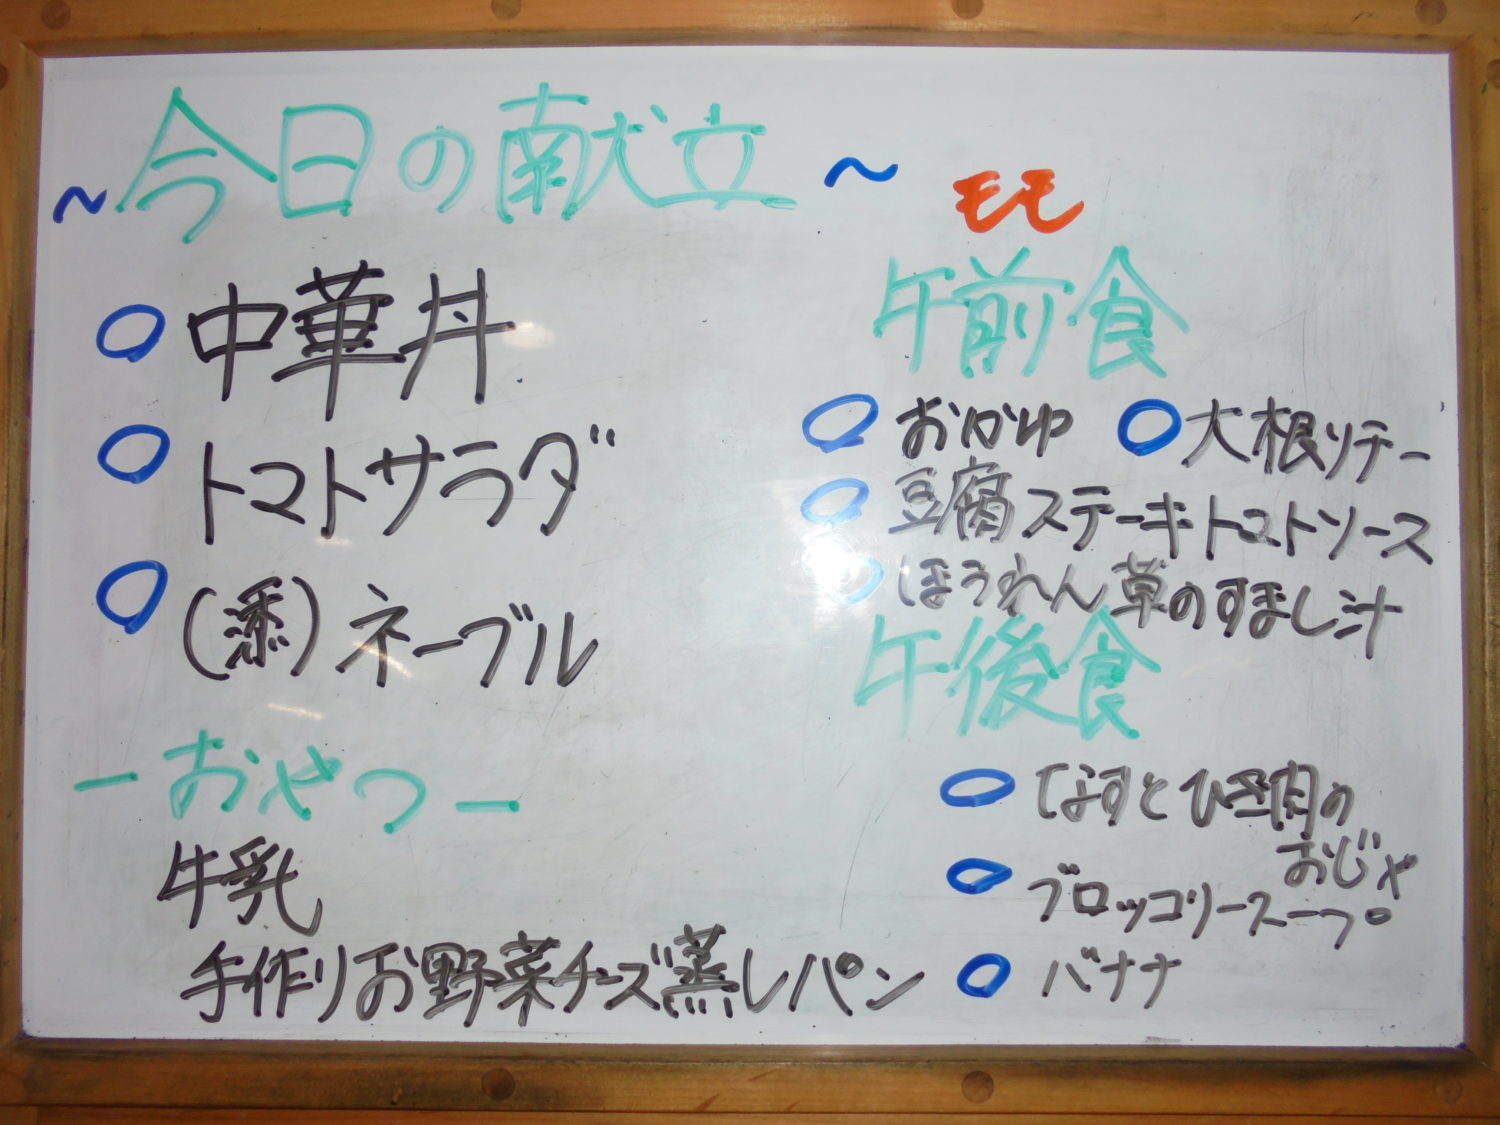 ~今日の献立~
○中華丼
○トマトサラダ
○(黍)ネーブル
-おやつ-
牛乳
手作りお野菜チーズ蒸しパン
モモ
午前食
○おかゆ ○大根ソテー
○豆腐ステーキトマトソース
○ほうれん草のすまし汁
午後食
○なすとひき肉の
おじや
○ブロッコリースープ
○バナナ